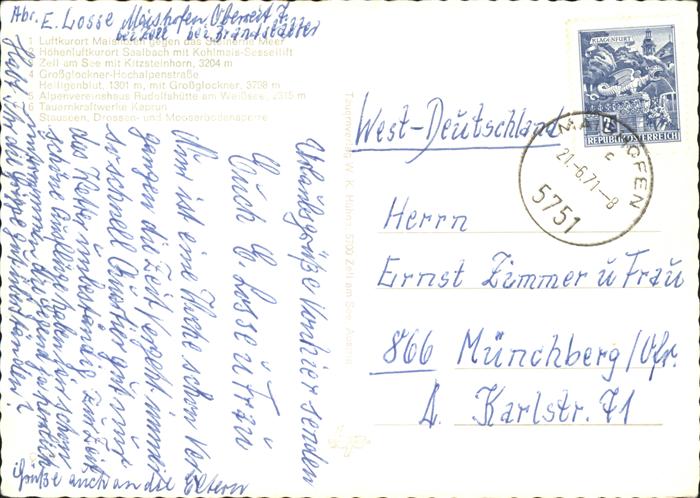 Abs. E. Losse Maishofen Oberreit 7.
bei Zell bei Brandstätter
1 Luftkurort Maishofen gegen das Steinerne Meer
2 Höhenluftkurort Saalbach mit Kohlmais-Sessellift
3 Zell am See mit Kitzsteinhorn, 3204 m
4 Großglockner-Hochalpenstraße
Heiligenblut, 1301 m, mit Großglockner, 3798 m
5 Alpenvereinshaus Rudolfshütte am Weißsee, 2315 m
6 Tauernkraftwerke Kaprun
Stauseen, Drossen- und Mooserbodensperre
Urlaubsgrüße von hier senden
Euch E. Losse u Frau
Nun ist eine Woche schon ver-
gangen die Zeit vergeht immer
so schnell Quartier gut nur
das Wetter unbeständig zur Zeit
schöne Ausflüge haben wir schon
unternommen die Gegend ja herrlich
Habt Ihr die Grippe gut überstanden?
Grüße auch an die Eltern
Tauernverlag W. K. Hühne, 5700 Zell am See, Austria
KLAGENFURT
2
REPUBLIK ÖSTERREICH
MAISHOFEN
c
21.-6.71-8
5751
West-Deutschland
Herrn
Ernst Zimmer u Frau
866 Münchberg/Ofr.
A. Karlstr. 71